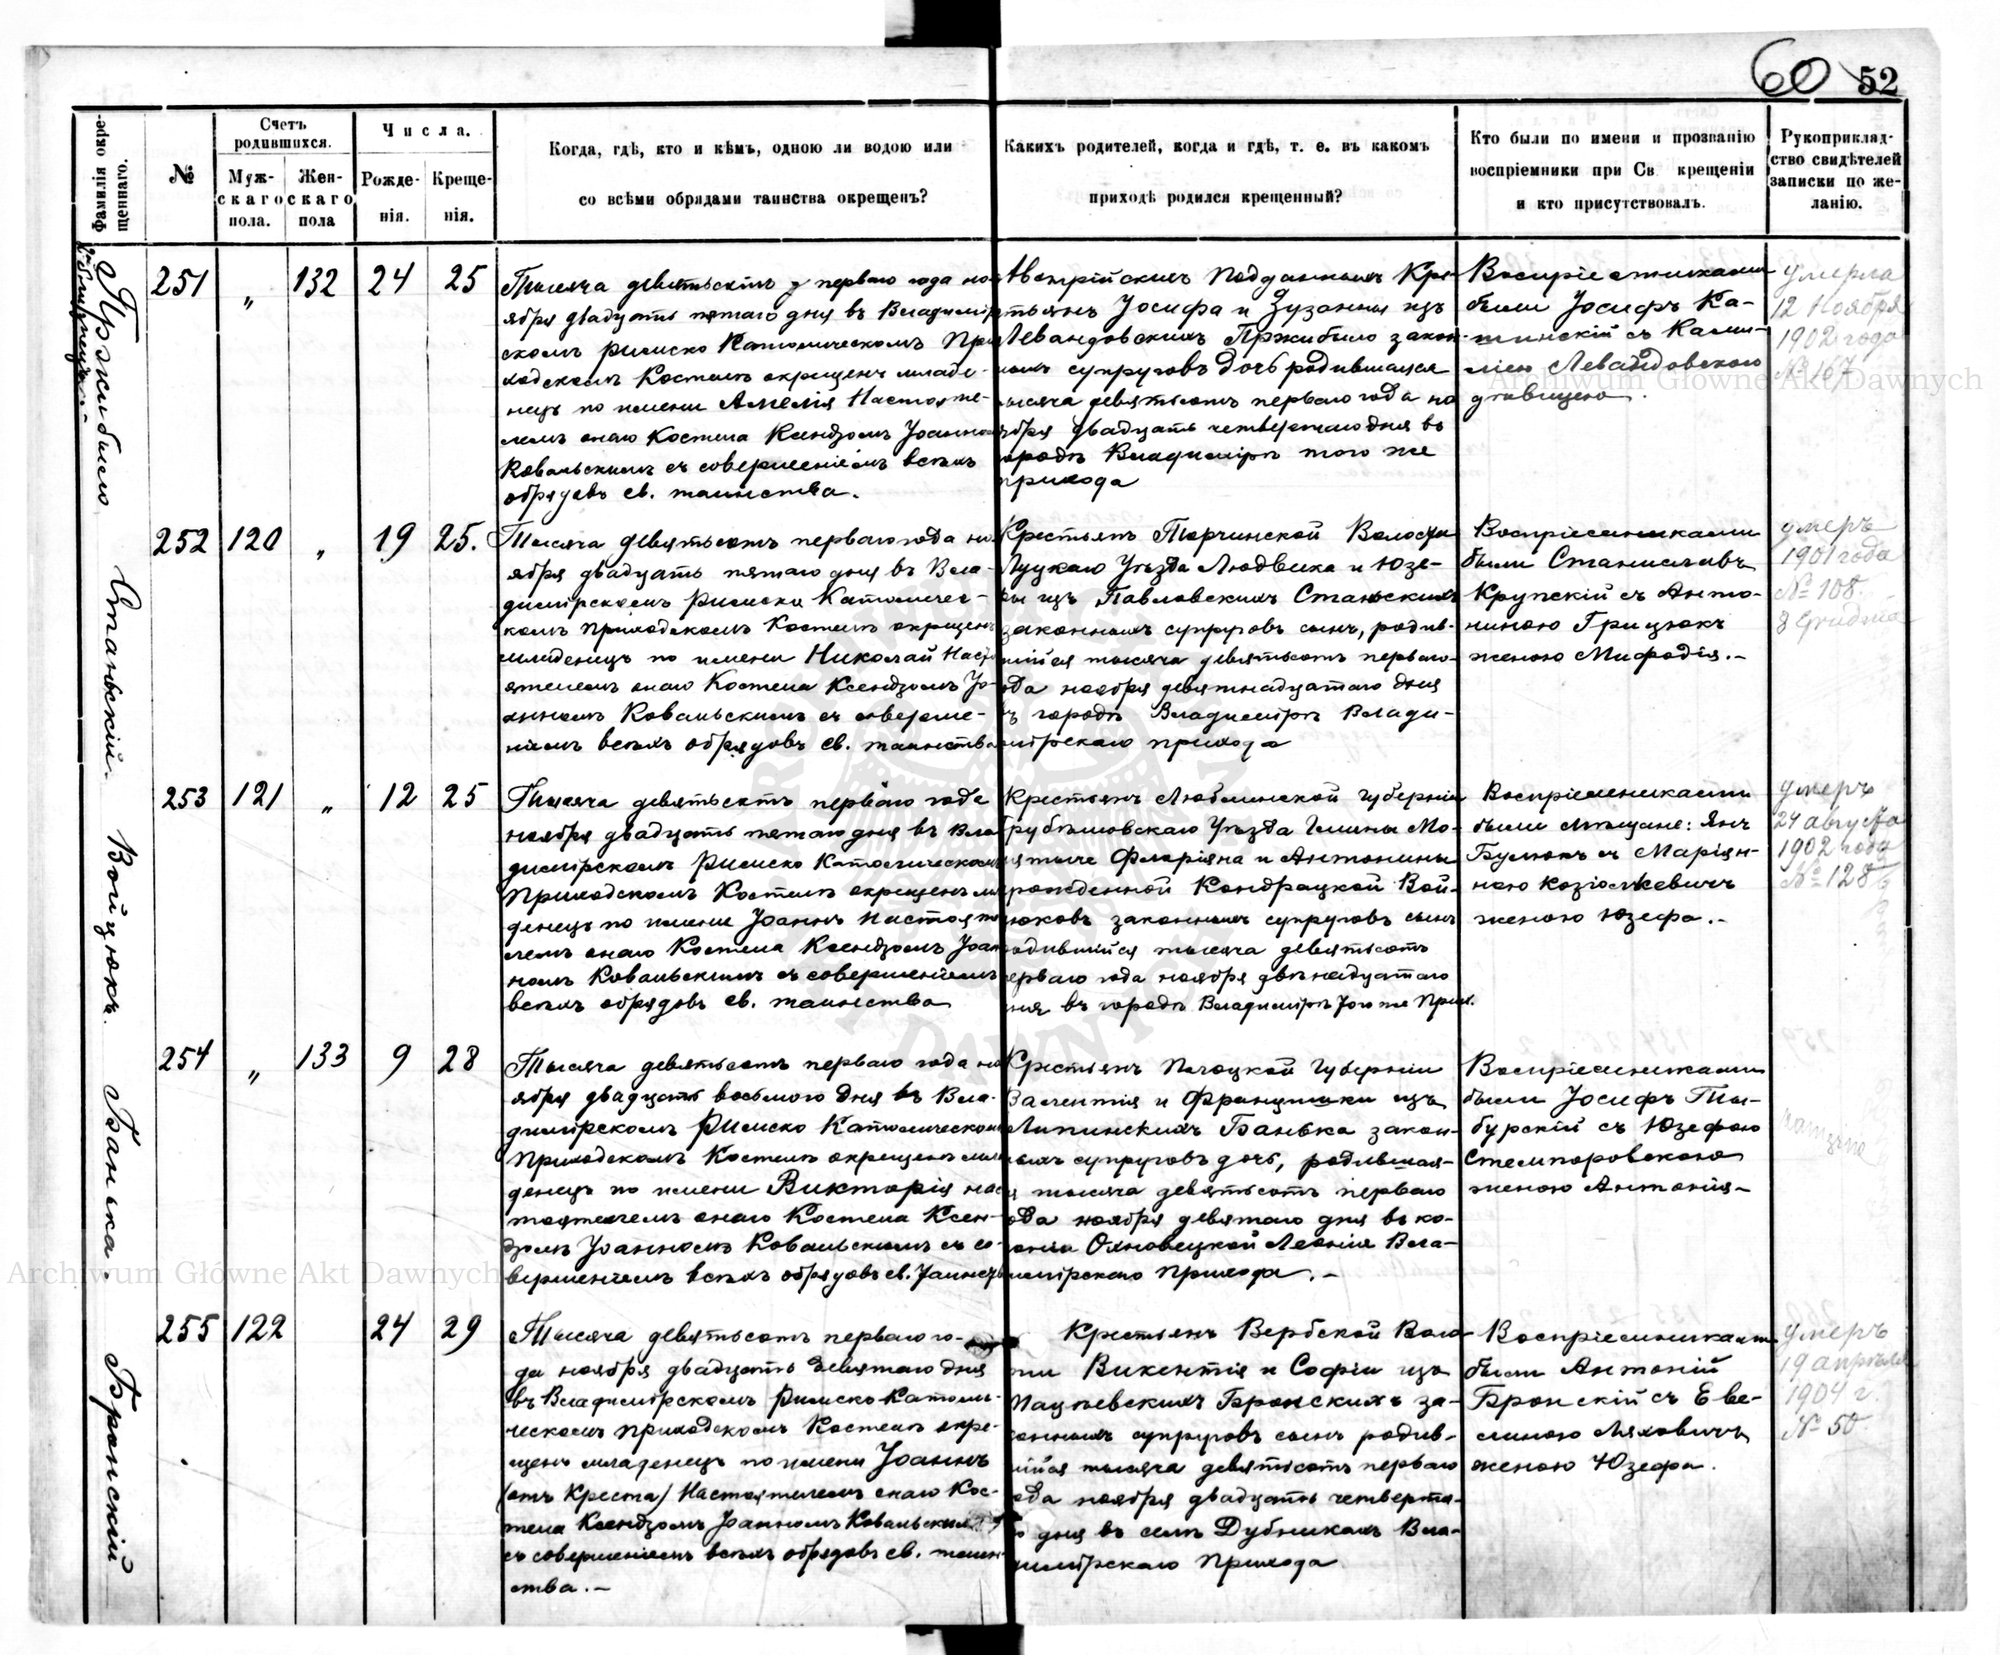 60 52
Фамилія окре-
щеннаго.
№
Счетъ
родившихся.
Муж-
скаго
пола.
Жен-
скаго
пола
Числа.
Рожде-
нія.
Креще-
нія.
Когда, гдѣ, кто и кѣмъ, одною ли водою или
со всѣми обрядами таинства окрещенъ?
Какихъ родителей, когда и гдѣ, т. е. въ какомъ
приходѣ родился крещенный?
Кто были по имени и прозванію
воспріемники при Св. крещеніи
и кто присутствовалъ.
Рукоприклад-
ство свидѣтелей
записки по же-
ланію.
Пржибыло
251 „ 132 24 25
Тысяча девятьсотъ перваго года но-
ября двадцать пятаго дня въ Владимір
скомъ римско Католическомъ При
ходскомъ Костелѣ окрещенъ младе-
нецъ по имени Амелія Настояте-
лемъ онаго Костела Ксендзомъ Іоанно
Ковальскимъ съ совершеніемъ всѣхъ
обрядовъ св. таинства.
Австрійскихъ Подданныхъ Кре-
тьянъ Іосифа и Зузанны изъ
Левандовскихъ Пржибыло закон-
ныхъ супруговъ дочь родившаяся
тысяча девятьсотъ перваго года но
ября двадцать четвертаго дня въ
городѣ Владимірѣ того же
прихода
Воспріемниками
были Іосифъ Ка-
минскій съ Ками-
лією Левандовскою
дѣвицею.
умерла
12 Ноября
1902 года
№ 167
Станьскій.
252 120 „ 19 25.
Тысяча девятьсотъ перваго года но
ября двадцать пятаго дня въ Вла-
димірскомъ римско Католичес-
комъ приходскомъ Костелѣ окрещенъ
младенецъ по имени Николай Насто
ятелемъ онаго Костела Ксендзомъ Іо-
анномъ Ковальскимъ съ соверше-
ніемъ всѣхъ обрядовъ св. таинства
Крестьянъ Торчинской Волости
Луцкаго Уѣзда Людвика и Юзе-
фы изъ Павловскихъ Станьскихъ
законныхъ супруговъ сынъ, родив-
шійся тысяча девятьсотъ перваго
года ноября девятнадцатаго дня
въ городѣ Владимірѣ Влади-
мірскаго прихода
Воспріемниками
были Станиславъ
Крупскій съ Анто-
ниною Грицюкъ
женою Мифодія.–
умеръ
1901 года
№ 108.
8 Grudnia
Войцюкъ.
253 121 „ 12 25
Тысяча девятьсотъ перваго года
ноября двадцать пятаго дня въ Вла
димірскомъ римско Католическомъ
Приходскомъ Костелѣ окрещенъ мла
денецъ по имени Іоаннъ Настояте
лемъ онаго Костела Ксендзомъ Іоан
номъ Ковальскимъ съ совершеніемъ
всѣхъ обрядовъ св. таинства
Крестьянъ Люблинской губерніи
Грубешовскаго Уѣзда Гмины Мо-
нятыче Флоріяна и Антонины
урожденной Кондрацкой Вой-
цюковъ законныхъ супруговъ сынъ
родившійся тысяча девятьсотъ
перваго года ноября двѣнадцатаго
дня въ городѣ Владимірѣ того же Прих.
Воспріемниками
были мѣщане: Янъ
Бумокъ съ Маріян-
ною Козіолкевичъ
женою Юзефа.–
умеръ
24 августа
1902 года
№ 128
Банька.
254 „ 133 9 28
Тысяча девятьсотъ перваго года но
ября двадцать восьмого дня въ Вла-
димірскомъ Римско Католическомъ
Приходскомъ Костелѣ окрещенъ мла
денецъ по имени Викторія нас
тоятелемъ онаго Костела Ксен-
дзомъ Іоанномъ Ковальскимъ съ со-
вершеніемъ всѣхъ обрядовъ св. таинств
Крестьянъ Плоцкой Губерніи
Валентія и Францишки изъ
Липинскихъ Банька закон-
ныхъ супруговъ дочь, родившая-
ся тысяча девятьсотъ перваго
года ноября девятаго дня въ ко-
лоніи Вла-
димірскаго Прихода.–
Воспріемниками
были Іосифъ Ты-
бурскій съ Юзефою
Стемпоровскою
женою Антонія–
Бронскій
255 122 24 29
Тысяча девятьсотъ перваго го-
да ноября двадцать девятаго дня
въ Владимірскомъ Римско Католи-
ческомъ приходскомъ Костелѣ окре-
щенъ младенецъ по имени Іоаннъ
(отъ Креста) Настоятелемъ онаго Кос-
тела Ксендзомъ Іоанномъ Ковальскимъ
съ совершеніемъ всѣхъ обрядовъ св. таин-
ства.–
Крестьянъ Вербской Воло
сти Викентія и Софіи изъ
Бронскихъ за-
конныхъ супруговъ сынъ родив-
шійся тысяча девятьсотъ перваго
года ноября двадцать четверта-
го дня въ селѣ Дубникахъ Вла-
димірскаго Прихода
Воспріемниками
были Антоній
Бронскій съ Еве-
линою Ляховичъ
женою Юзефа.
умеръ
19 апрѣля
1904 г.
№ 50.
Archiwum Główne Akt Dawnych
Archiwum Główne Akt Dawnych